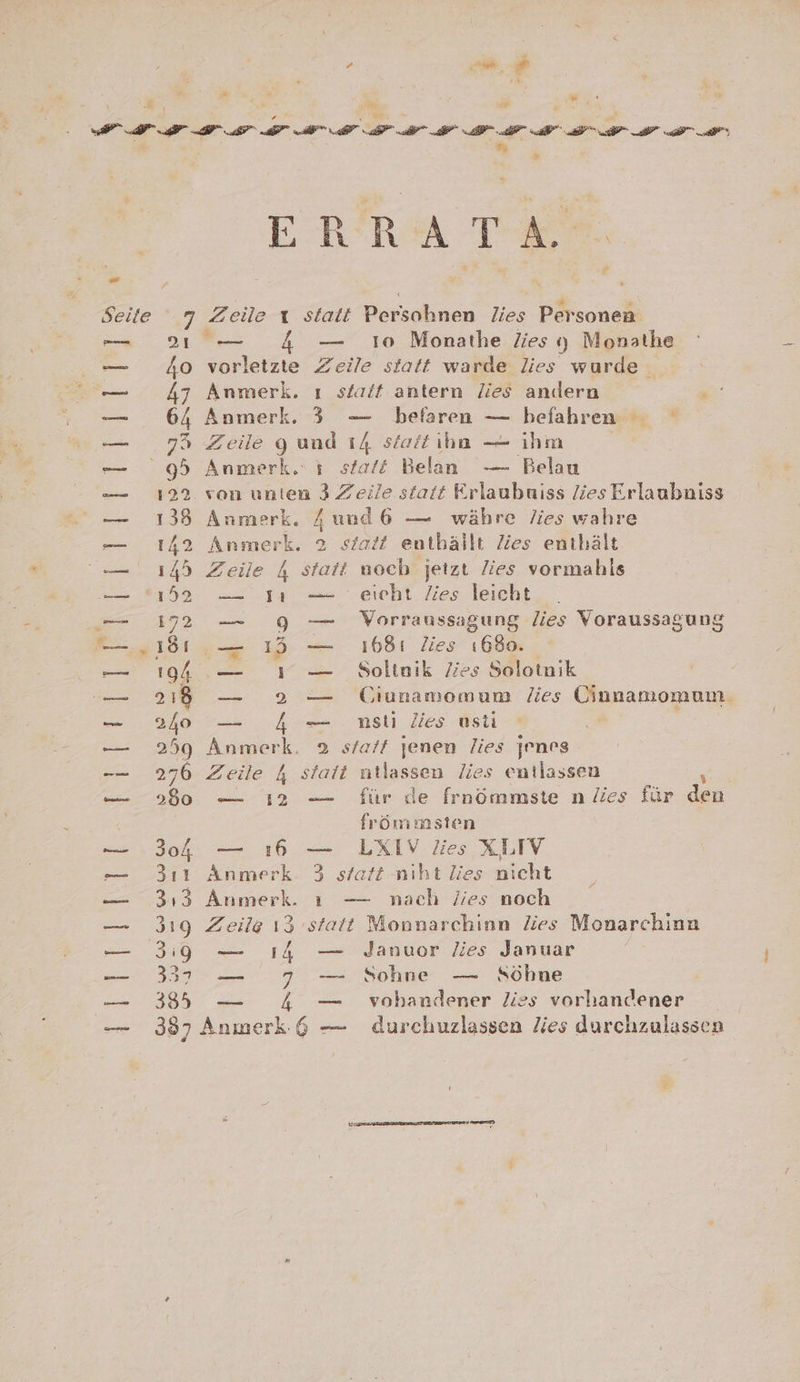 ERRATA.
Seite 7 Zeile 1 statt Persohnen lies Personen
— 21 — 4 — 10 Monathe lies 9 Monathe
— 40 vorletzte Zeile statt warde lies wurde
— 47 Anmerk. 1 statt antern lies andern
— 64 Anmerk. 3 — befaren — befahren
— 75 Zeile 9 und 14 statt ihn — ihm
— 95 Anmerk. 1 statt Belan — Belau
— 122 von unten 3 Zeile statt Erlaubuiss lies Erlaubniss
— 138 Anmerk. 4 und 6 — währe lies wahre
— 142 Anmerk. 2 statt enthällt lies enthält
— 145 Zeile 4 statt noch jetzt lies vormahls
— 152 — 11 — eicht lies leicht
— 172 — 9 — Vorraussagung lies Voraussagung
— 181 — 15 — 1681 lies 1680.
— 194 — 1 — Soltnik lies Solotnik
— 218 — 2 — Ciunamomum lies Cinnamomum
— 240 — 4 — nsti lies usti
— 259 Anmerk. 2 statt jenen lies jenes
— 276 Zeile 4 statt ntlassen lies entlassen
— 280 — 12 — für de frnömmste n lies für den
frömmsten
— 304 — 16 — LXIV lies XLIV
— 311 Anmerk. 3 statt niht lies nicht
— 313 Anmerk. 1 — nach lies noch
— 319 Zeile 13 statt Monnarchinn lies Monarchinn
— 319 — 14 — Januor lies Januar
— 337 — 7 — Sohne — Söhne
— 385 — 4 — vohandener lies vorhandener
— 387 Anmerk 6 — durchuzlassen lies durchzulassen